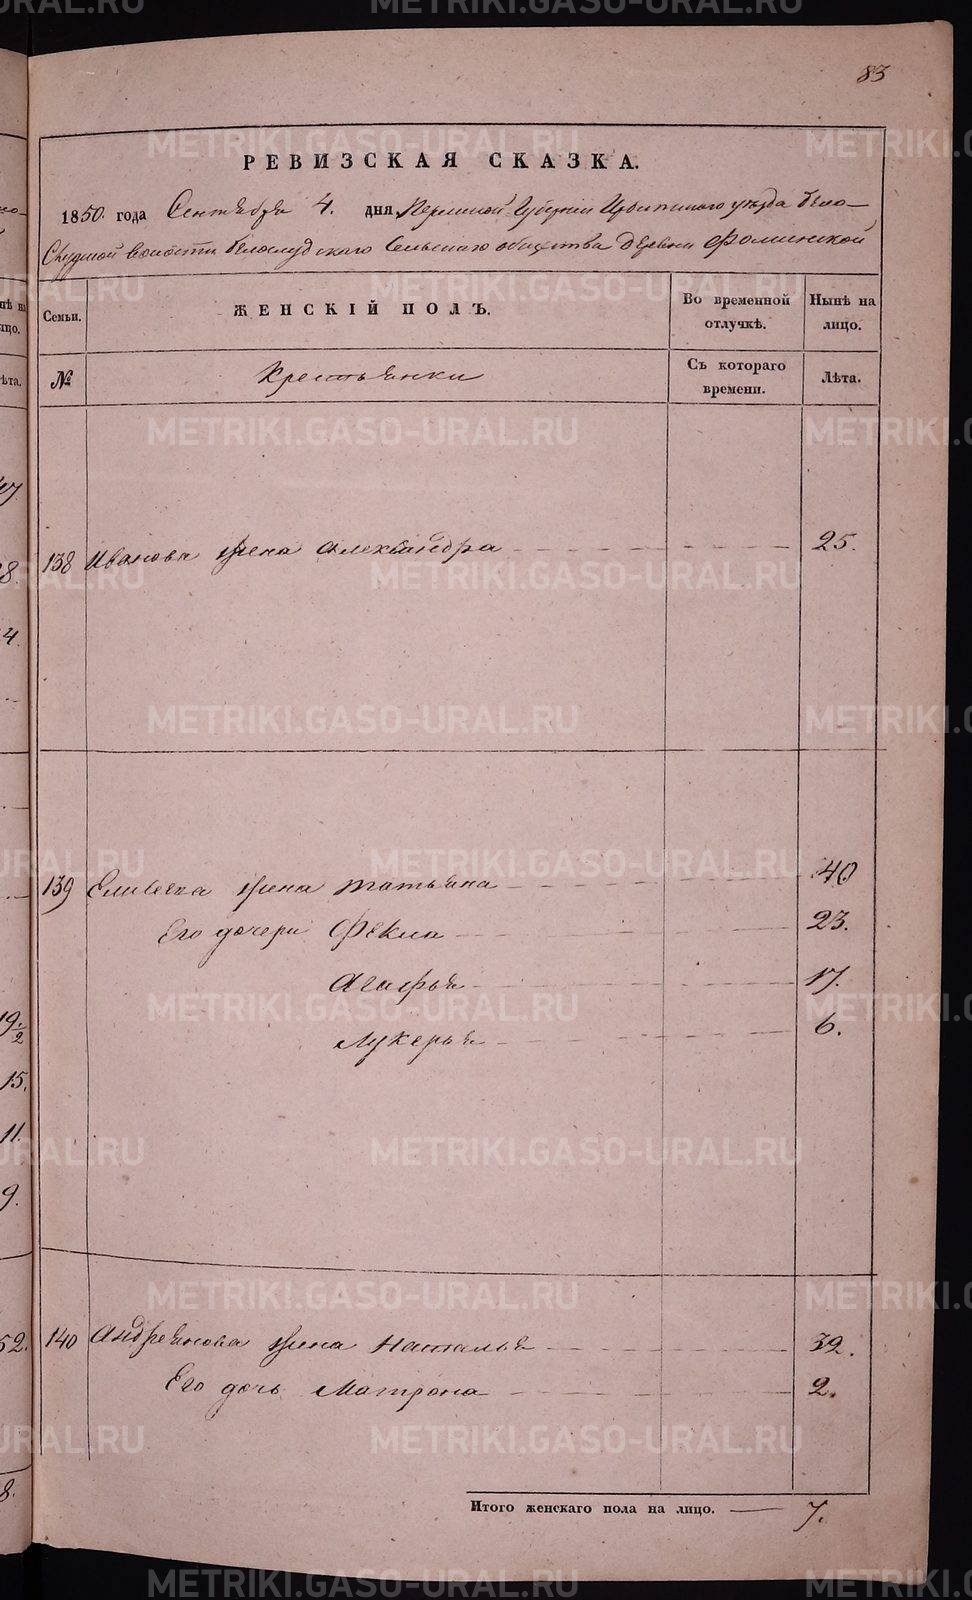 83
РЕВИЗСКАЯ СКАЗКА.
1850. года Сентября 4. дня Пермской Губернiи Ирбитского уѣзда Бело-
Слудской волости Белослудского Сельскаго общества Деревни Фоминской
Семьи. ЖЕНСКІЙ ПОЛЪ. Во временной отлучкѣ. Нынѣ на лицо.
№ Крестьянки Съ котораго времени. Лѣта.
138 Иванова жена Александра 25.
139 Елисеева жена Татьяна 40
Его дочери Фекла 23.
Агафья 17.
Лукерья 6.
140 Андреянова жена Наталья 32.
Его дочь Матрона 2.
Итого женскаго пола на лицо. 7.
47
28.
4.
19 1/2
15.
11.
9.
52.
8.
METRIKI.GASO-URAL.RU